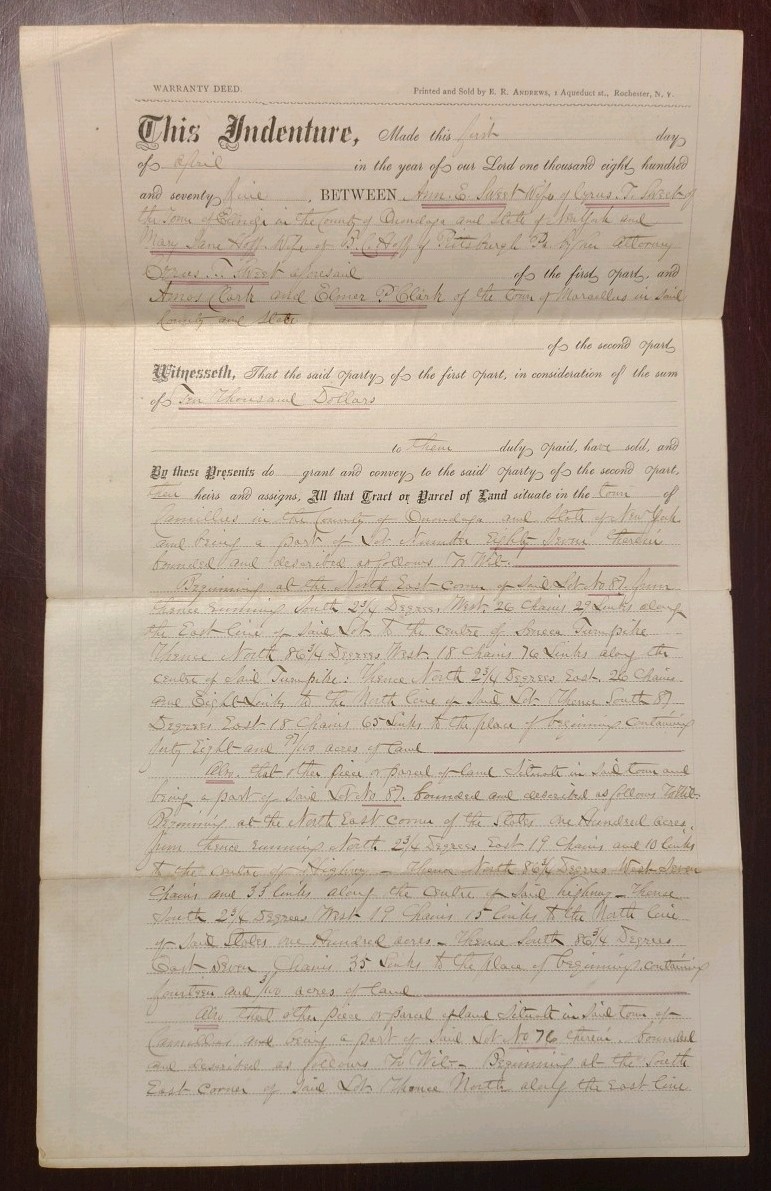 WARRANTY DEED. Printed and Sold by E. R. ANDREWS, 1 Aqueduct st., Rochester, N. Y.
This Indenture, Made this first day
of April in the year of our Lord one thousand eight hundred
and seventy , BETWEEN Ann E. Sweet Wife of Cyrus T. Sweet of
the Town of in the County of Onondaga and State of New York and
Mary Jane Hoff Wife of B. C. Hoff of Pittsburgh Pa by her attorney
Cyrus T. Sweet aforesaid of the first part, and
Amos Clark and Elmer P. Clark of the town of Marsellus in said
County and State
of the second part,
Witnesseth, That the said party of the first part, in consideration of the sum
of Ten Thousand Dollars
to them duly paid, have sold, and
By these Presents do grant and convey to the said party of the second part,
their heirs and assigns, All that Tract or Parcel of Land situate in the town of
Camillus in the County of Onondaga and State of New York
and being a part of Lot Number Eighty Seven therein
bounded and described as follows To Wit-
Beginning at the North East corner of said Lot No 87. from
thence running South 2 3/4 Degrees West 26 Chains 29 Links along
the East line of said Lot to the centre of Seneca Turnpike
Thence North 86 3/4 Degrees West 18 Chains 76 Links along the
centre of said Turnpike: Thence North 2 3/4 Degrees East 26 Chains
and Eight Links to the North line of said Lot. Thence South 87
Degrees East 18 Chains 65 Links to the place of beginning containing
forty Eight and /100 acres of land
Also, that other piece or parcel of land situate in said town and
being a part of said Lot No 87. bounded and described as follows To Wit-
Beginning at the North East corner of the States one Hundred acres.
from thence running North 2 3/4 Degrees East 19 Chains and 10 links
to the centre of Highway - Thence North 86 3/4 Degrees West Seven
Chains and 33 links along the centre of said highway - Thence
South 2 3/4 Degrees West 19 Chains 15 links to the North line
of said States one Hundred acres - Thence South 86 3/4 Degrees
East Seven Chains 35 Links to the place of beginning containing
fourteen and /100 acres of land
Also that other piece or parcel of land situate in said town of
Camillus and being a part of said Lot No 76 therein bounded
and described as follows To Wit- Beginning at the South
East corner of said Lot Thence North along the East line